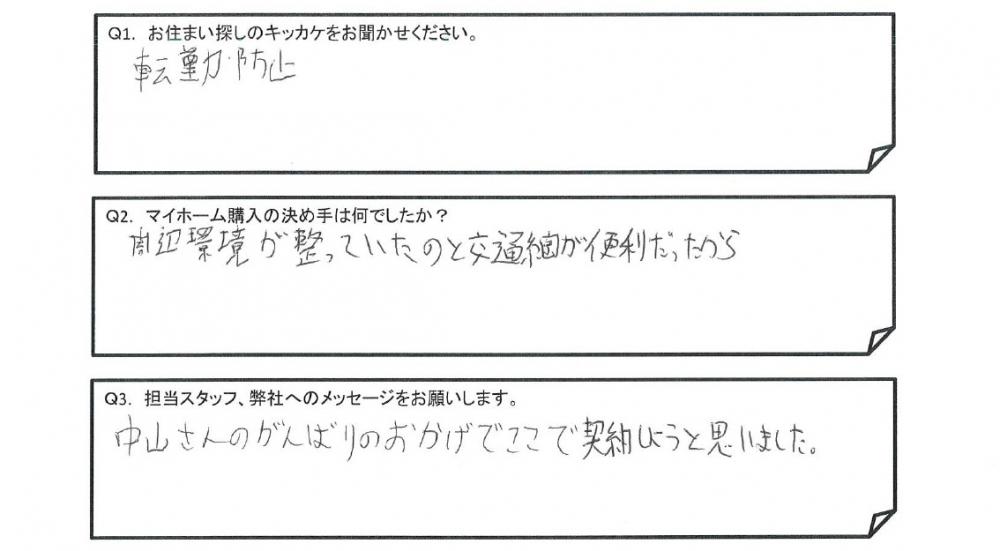 Q1. お住まい探しのキッカケをお聞かせください。
転勤防止
Q2. マイホーム購入の決め手は何でしたか？
周辺環境が整っていたのと交通網が便利だったから
Q3. 担当スタッフ、弊社へのメッセージをお願いします。
中山さんのがんばりのおかげでここで契約しようと思いました。